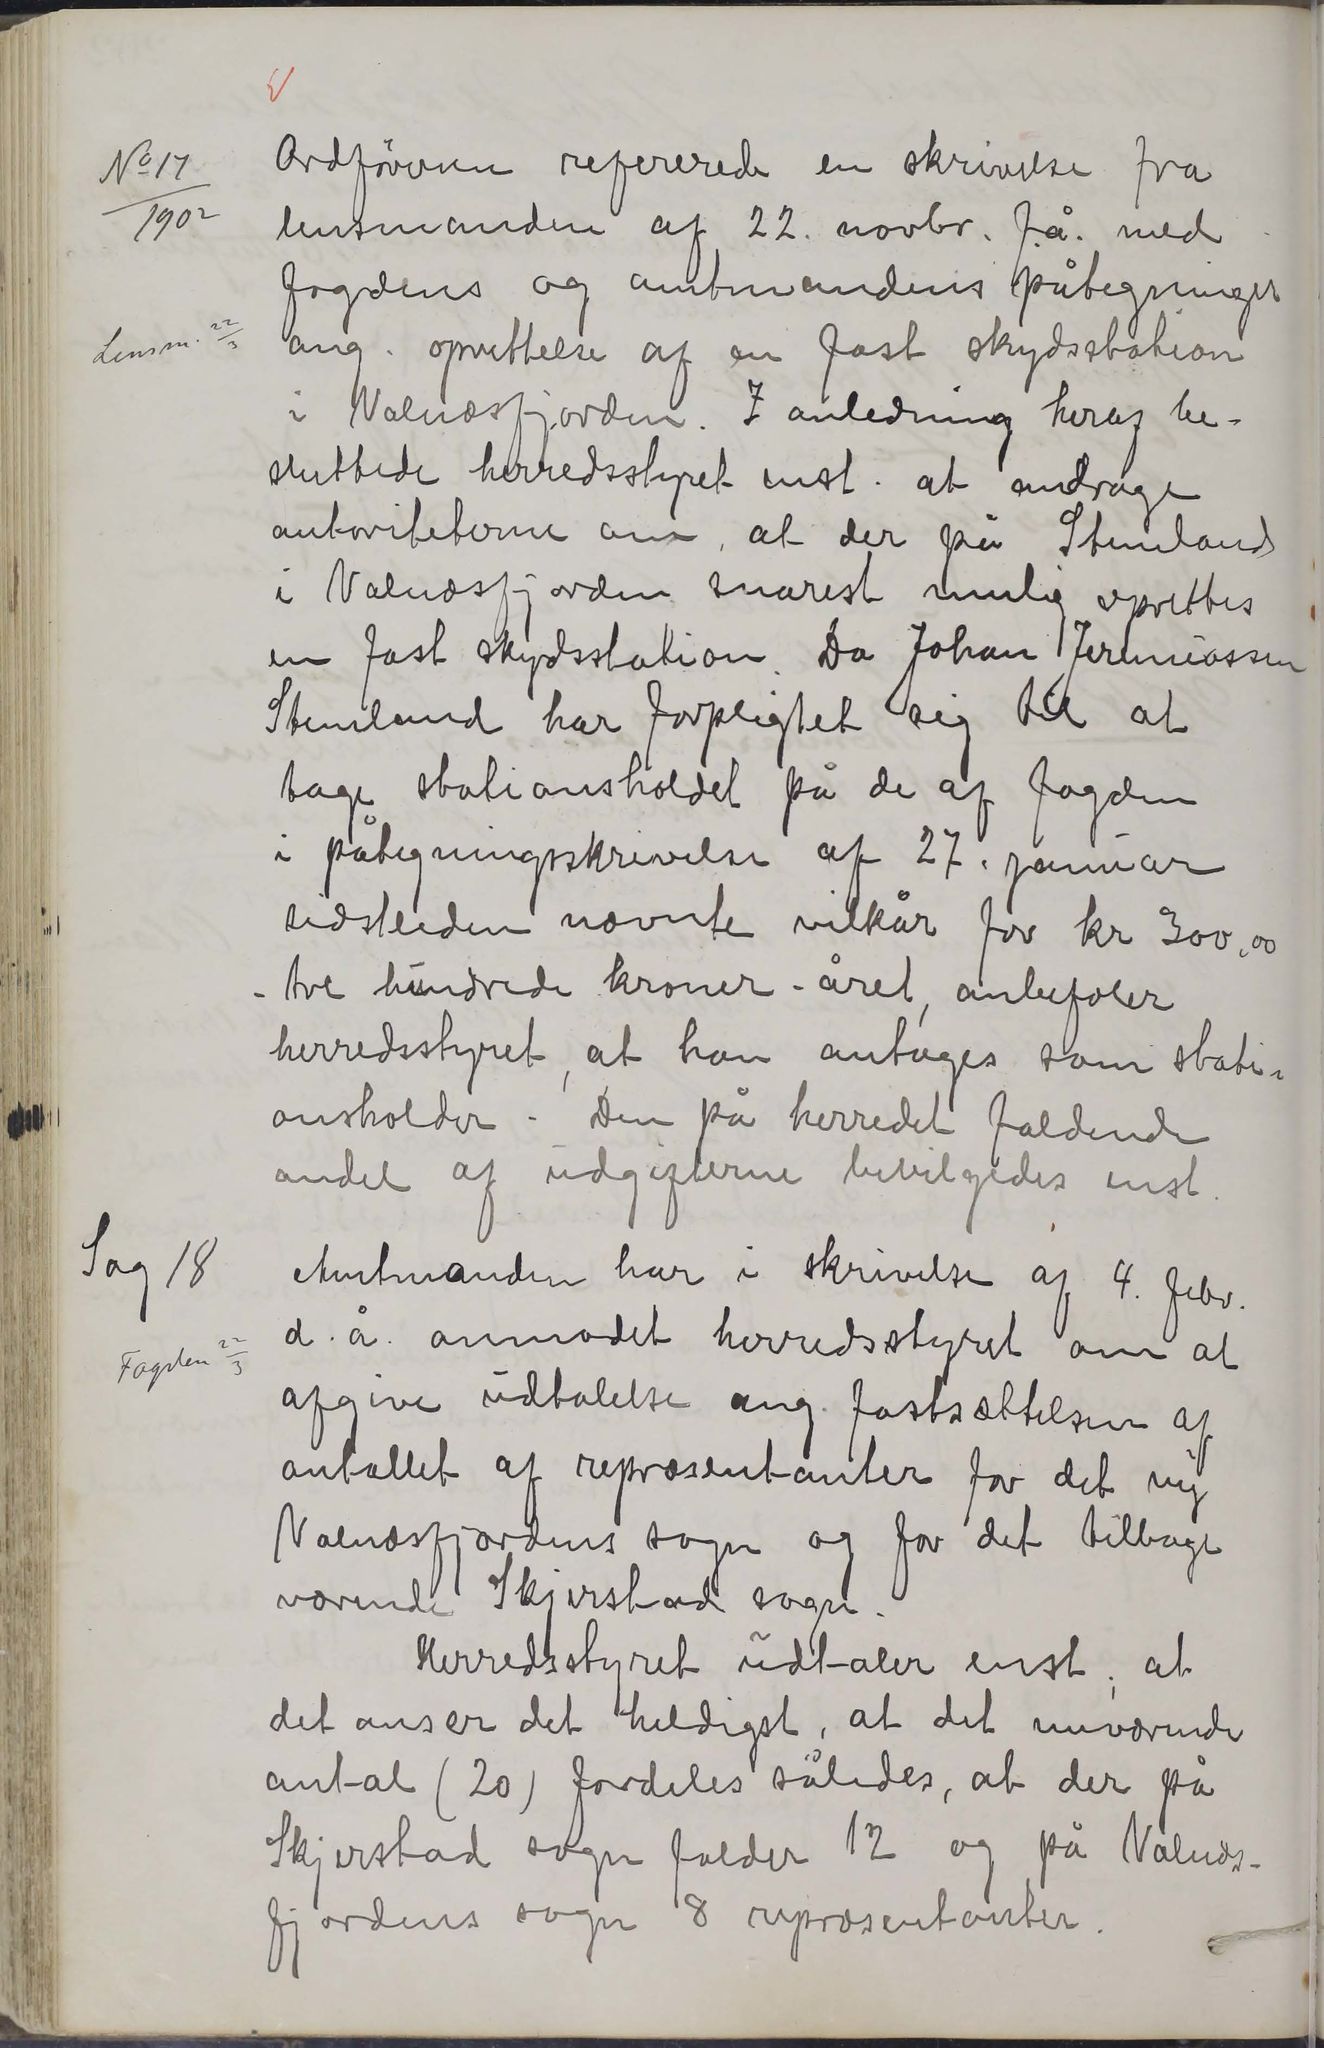 No 17
1902
Ordföreren refererede en skrivelse fra
lensmanden af 22. novbr. f.å. med
fogdens og amtmandens påtegninger
Lensm. 22/3
ang. oprettelse af en fast skydsstation
i Valnæsfjorden. I anledning heraf be-
sluttede herredsstyret enst. at andrage
autoriteterne om, at der på Stemland
i Valnæsfjorden snarest mulig oprettes
en fast skydsstation. Da Johan Jeremiassen
Stemland har forpligtet sig til at
tage stationsholdet på de af fogden
i påtegningsskrivelse af 27. januar
sidstleden nævnte vilkår for kr 300,00
- tre hundrede kroner - året, anbefaler
herredsstyret, at han antages som stati-
onsholder - Den på herredet faldende
andel af udgifterne bevilgedes enst.
Sag 18
Amtmanden har i skrivelse af 4. febr.
d.å. anmodet herredsstyret om at
Fogden 22/3
afgive udtalelse ang. fastsættelsen af
antallet af repræsentanter for det ny
Valnæsfjordens sogn og for det tilbage
værende Skjerstad sogn.
Herredsstyret udtaler enst, at
det anser det heldigst, at det nuværende
antal (20) fordeles således, at der på
Skjerstad sogn falder 12 og på Valnæs-
fjordens sogn 8 repræsentanter.